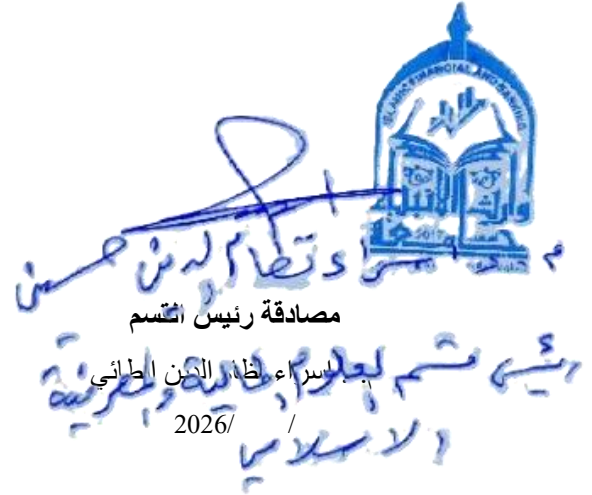 ISLAMIC FINANCIAL AND BANKING
وارث الانبياء
جامعة
م.د. اسراء نظام الدين حسين
مصادقة رئيس القسم
اسراء نظام الدين الطائي
رئيس قسم العلوم المالية والمصرفية
2026/ /
الاسلامية